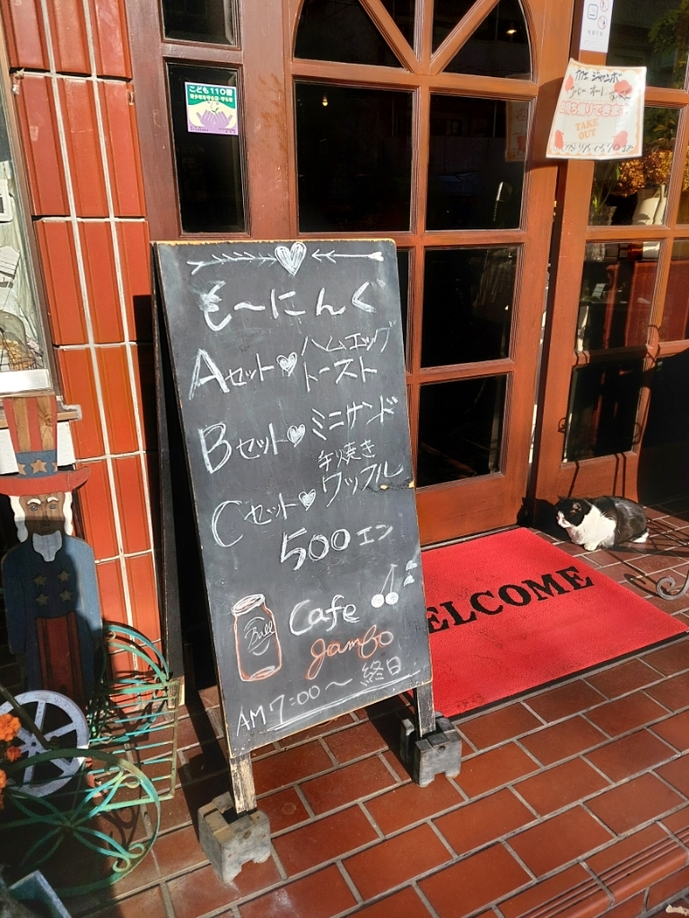 こども110番
カフェ ジャンボ
TAKE
OUT
も～にんぐ
Aセット ハムエッグ
トースト
Bセット ミニサンド
Cセット 手焼き
ワッフル
500エン
Ball
Cafe
jambo
AM 7:00～終日
WELCOME